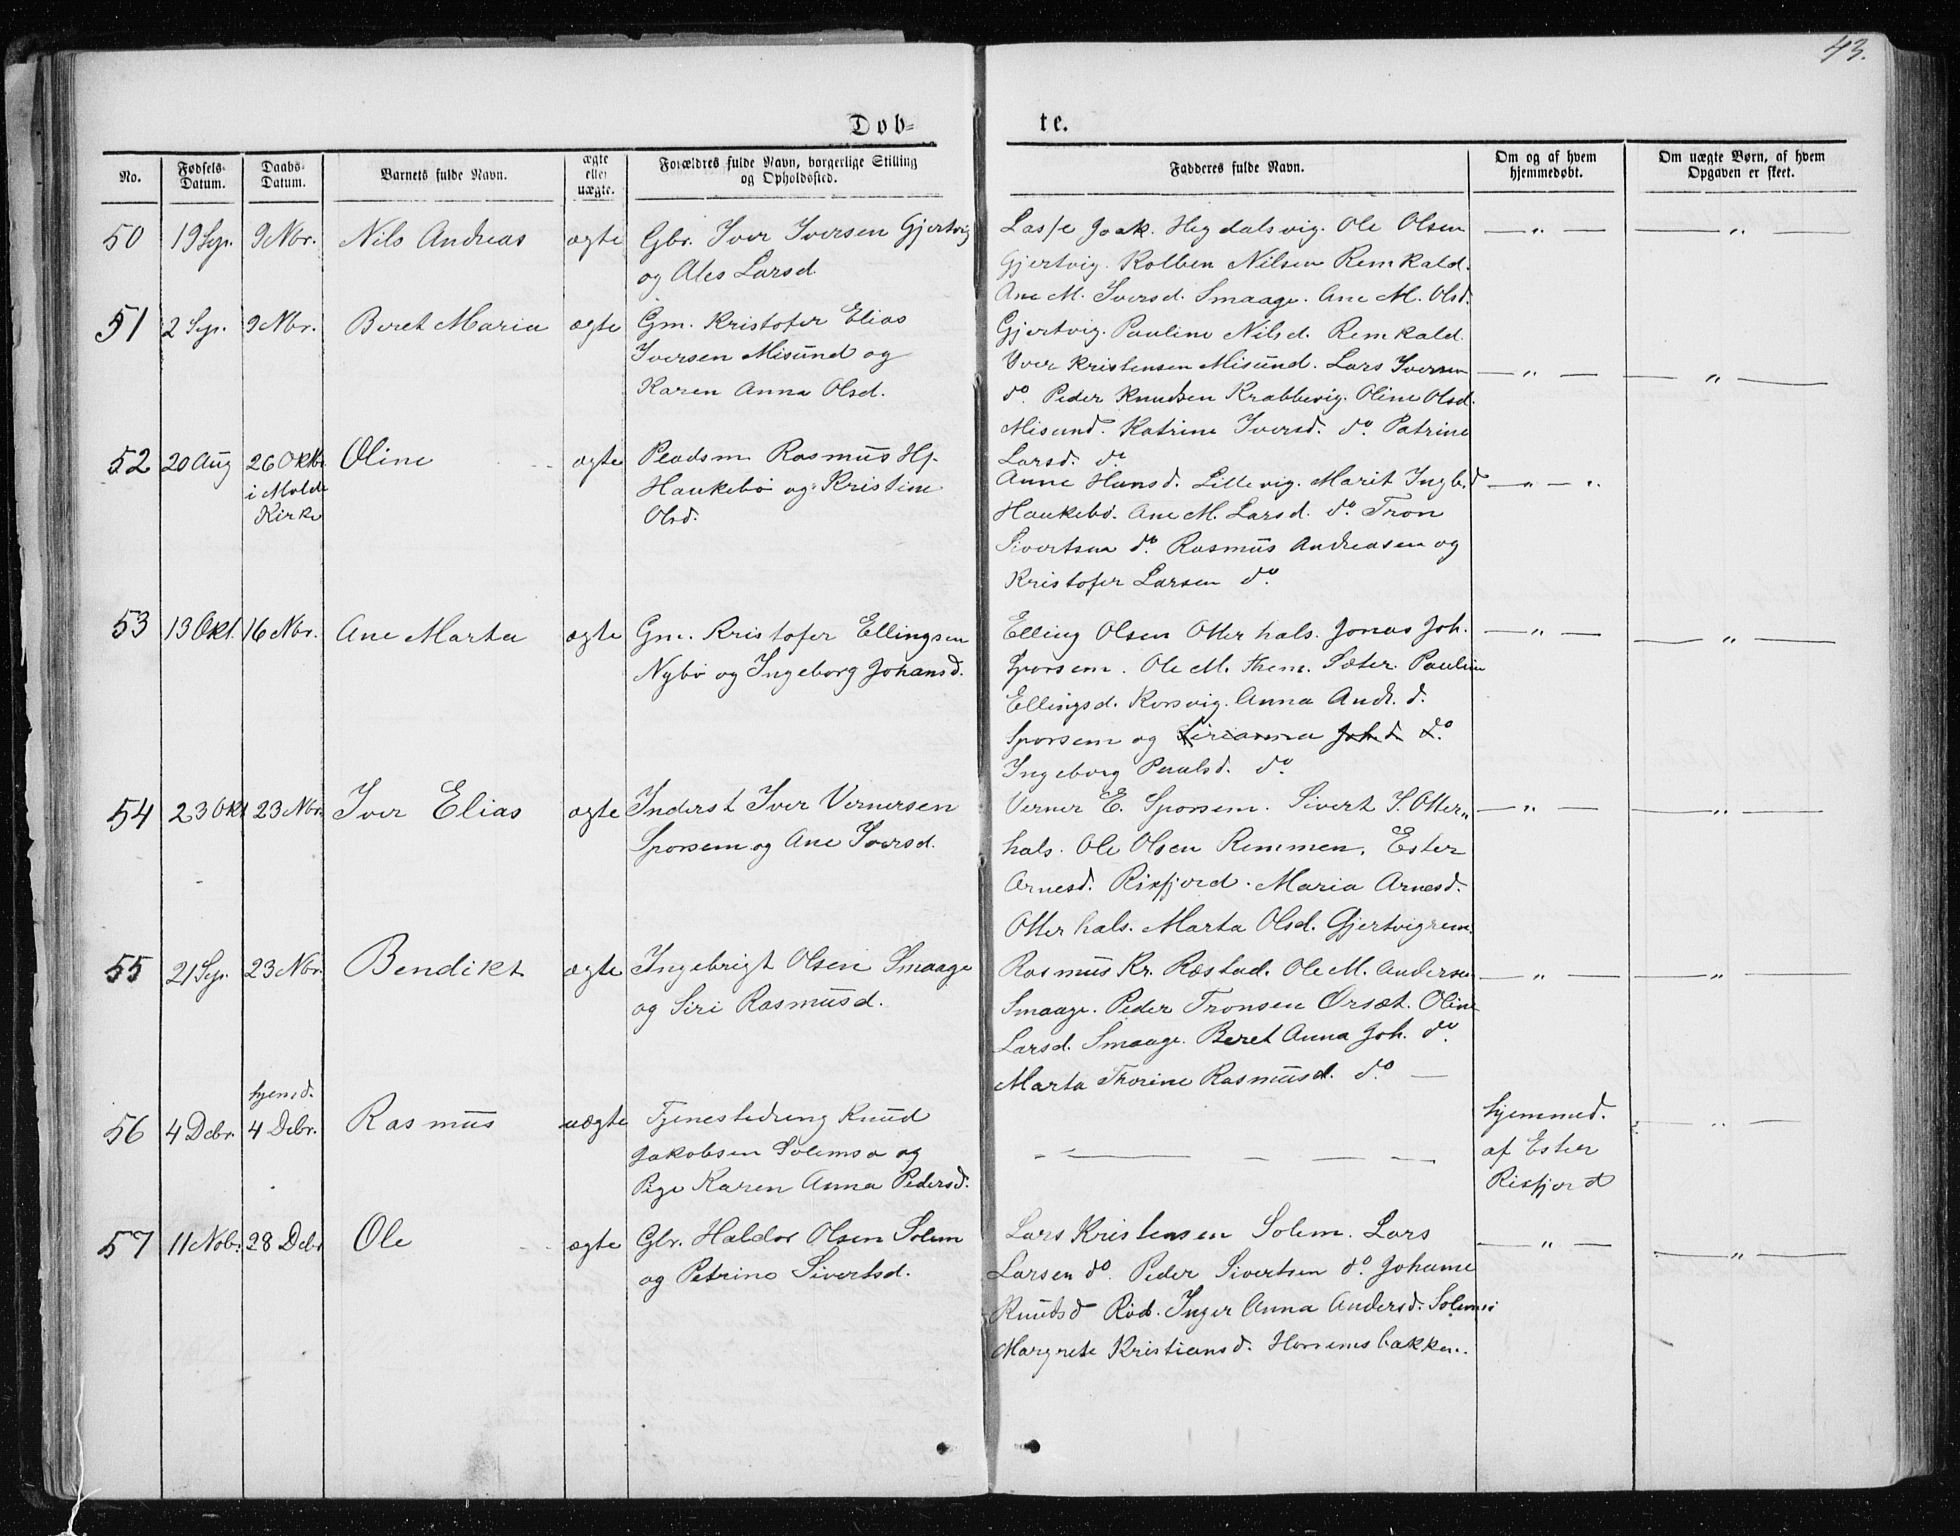 43.
Døb-
te.
No.
Fødsels-Datum.
Daabs-Datum.
Barnets fulde Navn.
ægte eller uægte.
Forældres fulde Navn, borgerlige Stilling og Opholdssted.
Fadderes fulde Navn.
Om og af hvem hjemmedøbt.
Om uægte Børn, af hvem Opgaven er skeet.
50 19 Sep. 9 Nbr. Nils Andreas ægte Gbr. Iver Iversen Gjertvig
og Ales Larsd.
Lasse Joak. Hegdalsvig. Ole Olsen
Gjertvig. Kolben Nilsen Remkald.
Ane M. Iversd. Smaage. Ane M. Olsd.
Gjertvig. Pauline Nilsd. Remkald.
— „ —
— „ —
51 2 Sep. 9 Nbr. Beret Maria ægte Gm. Kristofer Elias
Iversen Misund og
Karen Anna Olsd.
Iver Kristensen Misund. Lars Iversen
do. Peder Knudsen Krabbevig. Oline Olsd.
Misund. Katrine Iversd. do. Patrine
Larsd. do
— „ —
— „ —
52 20 Aug 26 Oktb. i Molde Kirke Oline ægte Pladsm. Rasmus Hj.
Haukebø og Kristine
Olsd.
Anne Hansd. Lillevig. Marit Ingb.d
Haukebø. Ane M. Larsd. do. Tron
Sivertsen do. Rasmus Andreasen og
Kristofer Larsen do.
— „ — „
53 13 Okt. 16 Nbr. Ane Marta ægte Gm. Kristofer Ellingsen
Nybø og Ingeborg Johansd.
Elling Olsen Otterhals. Jonas Joh.
Sporsem. Ole M. Sæter. Pauline
Ellingsd. Korsvig. Anna Andr. d.
Sporsem og Sirianna Joh.d. do.
Ingeborg Paulsd. do.
— „ —
— „ —
54 23 Okt 23 Nbr. Iver Elias ægte Inderst Iver Vernersen
Sporsem og Ane Iversd.
Verner E. Sporsem. Sivert S. Otter„
hals. Ole Olsen Remmen. Ester
Arnesd. Rixfjord. Maria Arnesd.
Otterhals. Marta Olsd. Gjertvigrem.
— „ —
— „ —
55 21 Sep. 23 Nbr. Bendikt ægte Ingebrigt Olsen Smaage
og Siri Rasmusd.
Rasmus Kr. Ræstad. Ole M. Andersen
Smaage. Peder Tronsen Ørsæt. Oline
Larsd. Smaage. Beret Anna Joh. do.
Marta Thorine Rasmusd. do. —
— „ —
— „ —
56 4 Debr. hjemd. 4 Debr. Rasmus uægte Tjenestedreng Knud
Jakobsen Solemsø og
Pige Karen Anna Pedersd.
hjemmed.
af Ester
Rixfjord
— „ —
57 11 Nob. 28 Debr Ole ægte Gbr. Haldor Olsen Solem
og Petrine Sivertsd.
Lars Kristensen Solem. Lars
Larsen do. Peder Sivertsen do. Johanne
Knudsd Rød. Inger Anna Andersd. Solemsø
Margrete Kristiansd. Horsemsbakken.
— „ —
— „ —